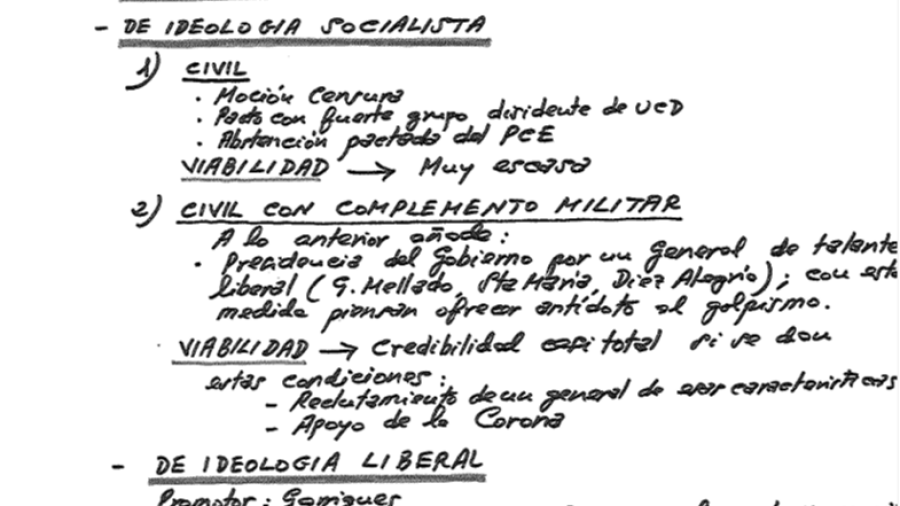 - DE IDEOLOGIA SOCIALISTA
1) CIVIL
· Moción Censura
· Pacto con fuerte grupo disidente de UCD
· Abstención pactada del PCE
VIABILIDAD → Muy escasa
2) CIVIL CON COMPLEMENTO MILITAR
A lo anterior añade:
· Presidencia del Gobierno por un general de talante
liberal (G. Mellado, Sta María, Diez Alegría); con esta
medida piensan ofrecer antídoto al golpismo.
VIABILIDAD → Credibilidad casi total si se dan
estas condiciones:
- Reclutamiento de un general de esas características
- Apoyo de la Corona
- DE IDEOLOGIA LIBERAL
Promotor: Garrigues